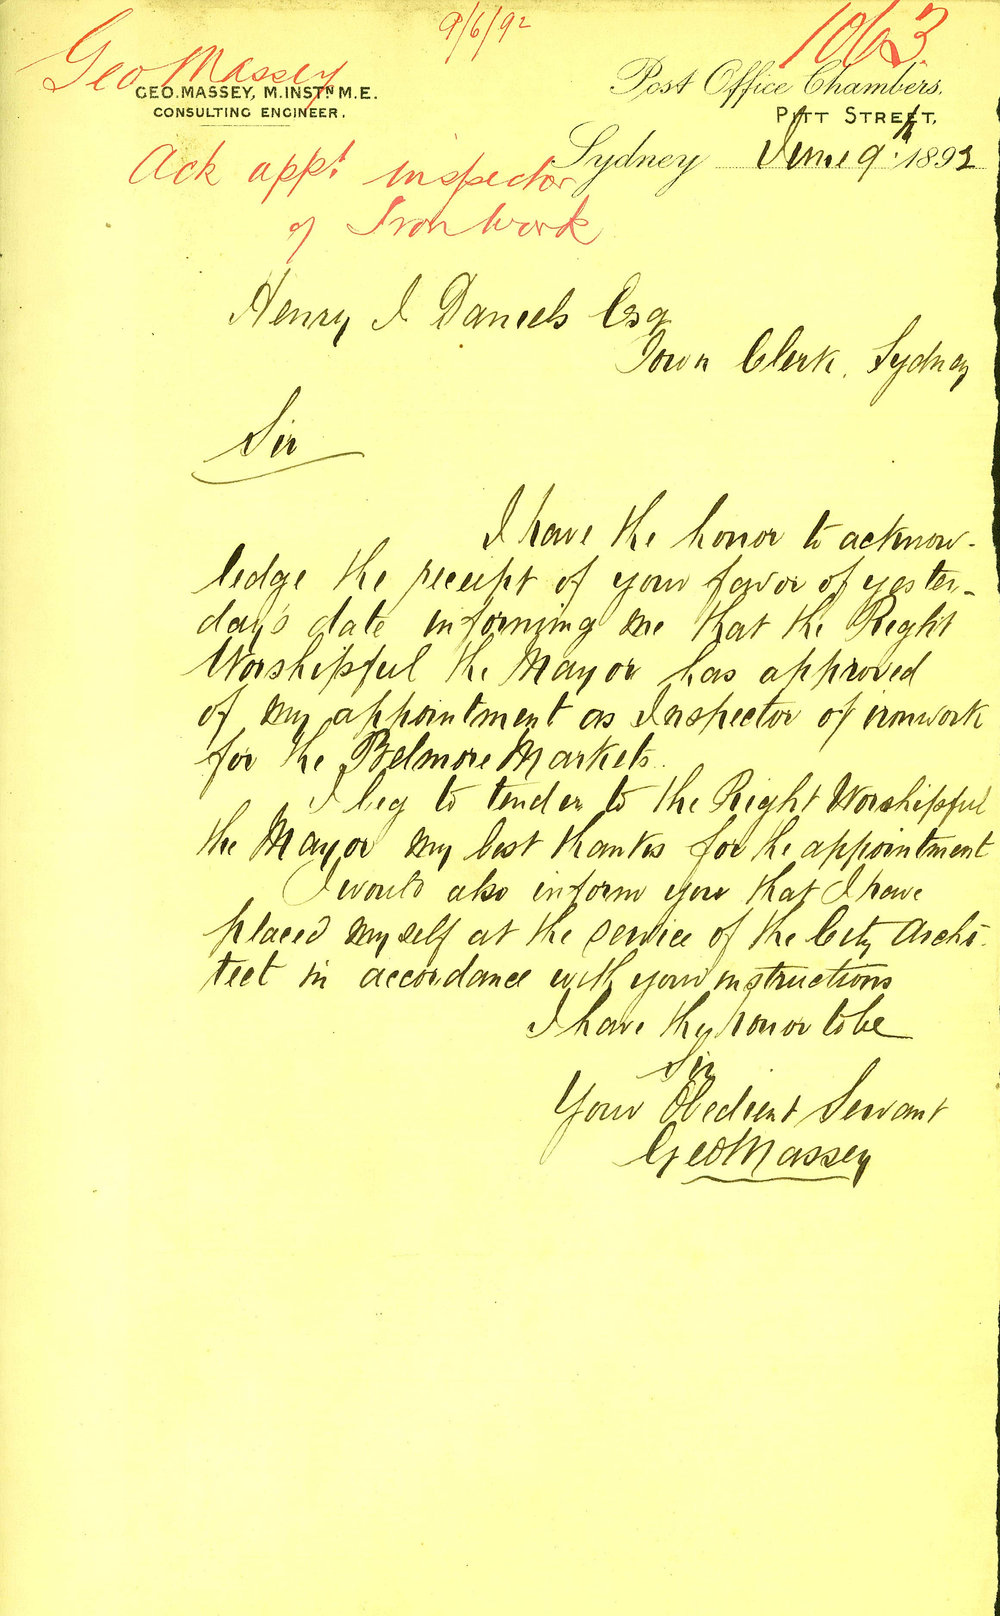 9/6/92
1063
Geo Massey
GEO. MASSEY, M. INSTN M.E.
CONSULTING ENGINEER.
Post Office Chambers.
PITT STREET,
Sydney June 9th 1892
Ack appt inspector
of Iron Work
Henry J Daniels Esq
Town Clerk, Sydney
Sir
I have the honor to acknow-
ledge the receipt of your favor of yester-
day's date informing me that the Right
Worshipful the Mayor has approved
of my appointment as Inspector of ironwork
for the Belmore Markets.
I beg to tender to the Right Worshipful
the Mayor my best thanks for the appointment
I would also inform you that I have
placed myself at the service of the City Archi-
tect in accordance with your instructions
I have the honor to be
Sir
Your Obedient Servant
Geo Massey